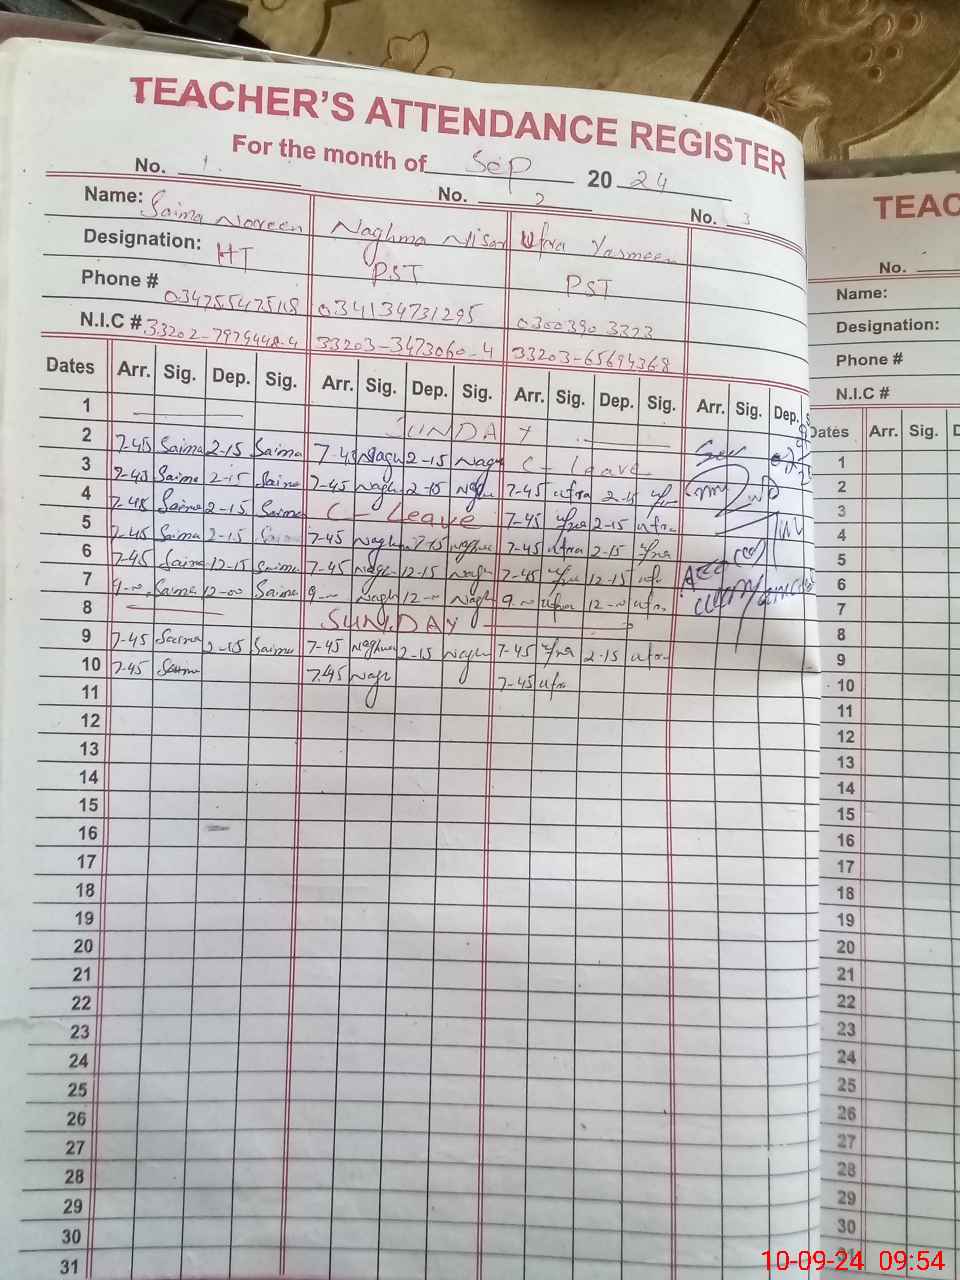 TEACHER'S ATTENDANCE REGISTER
For the month of Sep 2024
No. 1 No. 2 No. 3
Name: Saima Noreen Naghma Nisar Ufra Yasmeen
Designation: HT PST PST
Phone # 03475547518 034134731295 0300390 3323
N.I.C # 33202-7979448-4 33203-3473060-4 33203-65694368
Dates Arr. Sig. Dep. Sig. Arr. Sig. Dep. Sig. Arr. Sig. Dep. Sig. Arr. Sig. Dep.
1 SUNDAY
2 7-45 Saima 2-15 Saima 7-45 Nagh 2-15 Nagh C-Leave
3 7-45 Saima 2-15 Saima 7-45 Nagh 2-15 Nagh 7-45 Ufra 2-15 Ufra
4 7-45 Saima 2-15 Saima C-Leave 7-45 Ufra 2-15 Ufra
5 7-45 Saima 2-15 Saima 7-45 Nagh 2-15 Naghma 7-45 Ufra 2-15 Ufra
6 7-45 Saima 12-15 Saima 7-45 Nagh 12-15 Nagh 7-45 Ufra 12-15 Ufra
7 9-00 Saima 12-00 Saima 9-00 Nagh 12-00 Nagh 9-00 Ufra 12-00 Ufra
8 SUNDAY
9 7-45 Saima 2-15 Saima 7-45 Naghma 2-15 Nagh 7-45 Ufra 2-15 Ufra
10 7-45 Saima 7-45 Nagh 7-45 Ufra
11
12
13
14
15
16
17
18
19
20
21
22
23
24
25
26
27
28
29
30
31
TEAC
No.
Name:
Designation:
Phone #
N.I.C #
Dates Arr. Sig. D
1
2
3
4
5
6
7
8
9
10
11
12
13
14
15
16
17
18
19
20
21
22
23
24
25
26
27
28
29
30
31
10-09-24 09:54